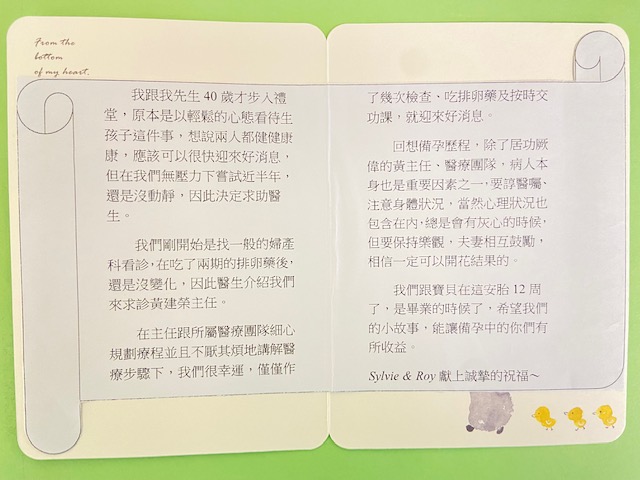 From the
bottom
of my heart.
我跟我先生 40 歲才步入禮
堂，原本是以輕鬆的心態看待生
孩子這件事，想說兩人都健健康
康，應該可以很快迎來好消息，
但在我們無壓力下嘗試近半年，
還是沒動靜，因此決定求助醫
生。
我們剛開始是找一般的婦產
科看診，在吃了兩期的排卵藥後，
還是沒變化，因此醫生介紹我們
來求診黃建榮主任。
在主任跟所屬醫療團隊細心
規劃療程並且不厭其煩地講解醫
療步驟下，我們很幸運，僅僅作
了幾次檢查、吃排卵藥及按時交
功課，就迎來好消息。
回想備孕歷程，除了居功厥
偉的黃主任、醫療團隊，病人本
身也是重要因素之一，要諄醫囑、
注意身體狀況，當然心理狀況也
包含在內，總是會有灰心的時候，
但要保持樂觀，夫妻相互鼓勵，
相信一定可以開花結果的。
我們跟寶貝在這安胎 12 周
了，是畢業的時候了，希望我們
的小故事，能讓備孕中的你們有
所收益。
Sylvie & Roy 獻上誠摯的祝福～